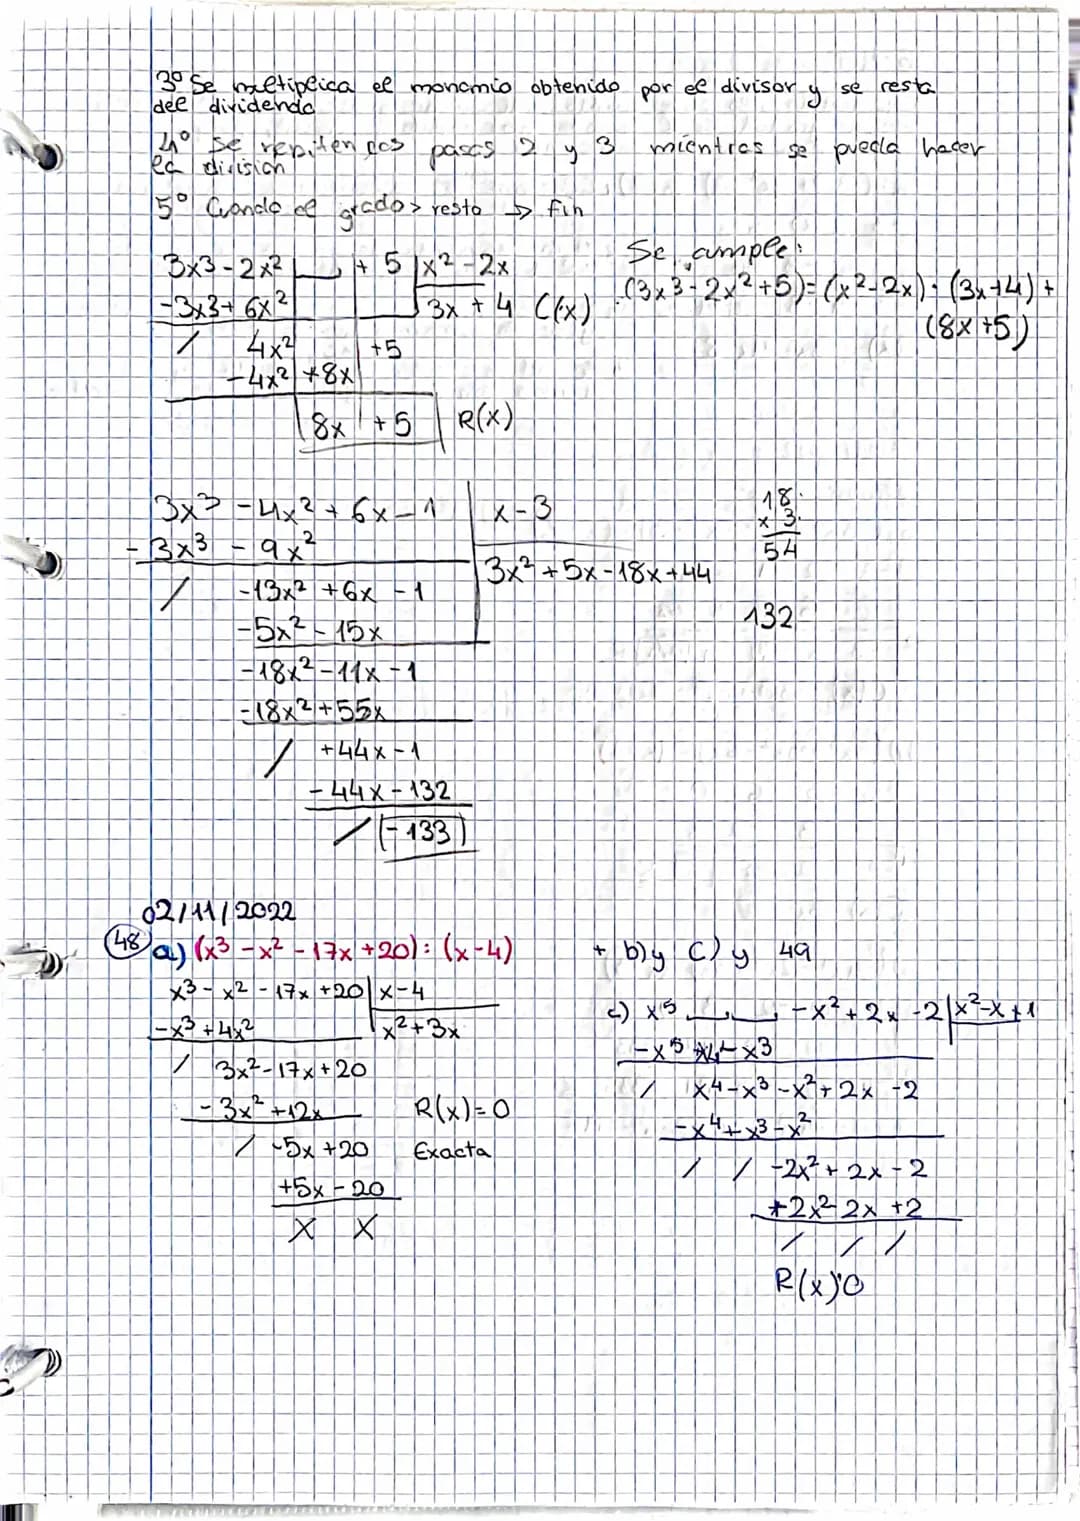 3º Se multiplica el monomio obtenido por el divisor y se resta
del dividendo
4º Se repiten los pasos 2 y 3 mientras se pueda hacer
la división
5º Cuando el grado > resto → fin
Se cumple:
3x3 - 2x² + 5 | x² - 2x
(3x3 - 2x² + 5) = (x² - 2x) · (3x + 4) +
(8x + 5)
- 3x3 + 6x² 3x + 4 C(x)
/ 4x² + 5
- 4x² + 8x
8x + 5 R(x)
3x3 - 4x² + 6x - 1 | x - 3
- 3x3 - 9x²
3x² + 5x - 18x + 44
/ -13x² + 6x - 1
- 5x² - 15x
- 18x² - 11x - 1
- 18x² + 55x
/ + 44x - 1
- 44x - 132
/ - 133
18
x 3
54
132
02/11/2022
48 a) (x3 - x² - 17x + 20) : (x - 4)
+ b) y C) y 49
x3 - x² - 17x + 20 | x - 4
- x3 + 4x² x² + 3x
/ 3x² - 17x + 20
- 3x² + 12x R(x) = 0
/ - 5x + 20 Exacta
+ 5x - 20
X X
c) x5 - x² + 2x - 2 | x² - x + 1
- x5 - x3
/ x4 - x3 - x² + 2x - 2
- x4 + x3 - x²
/ / - 2x² + 2x - 2
+ 2x² - 2x + 2
/ / /
R(x) 0